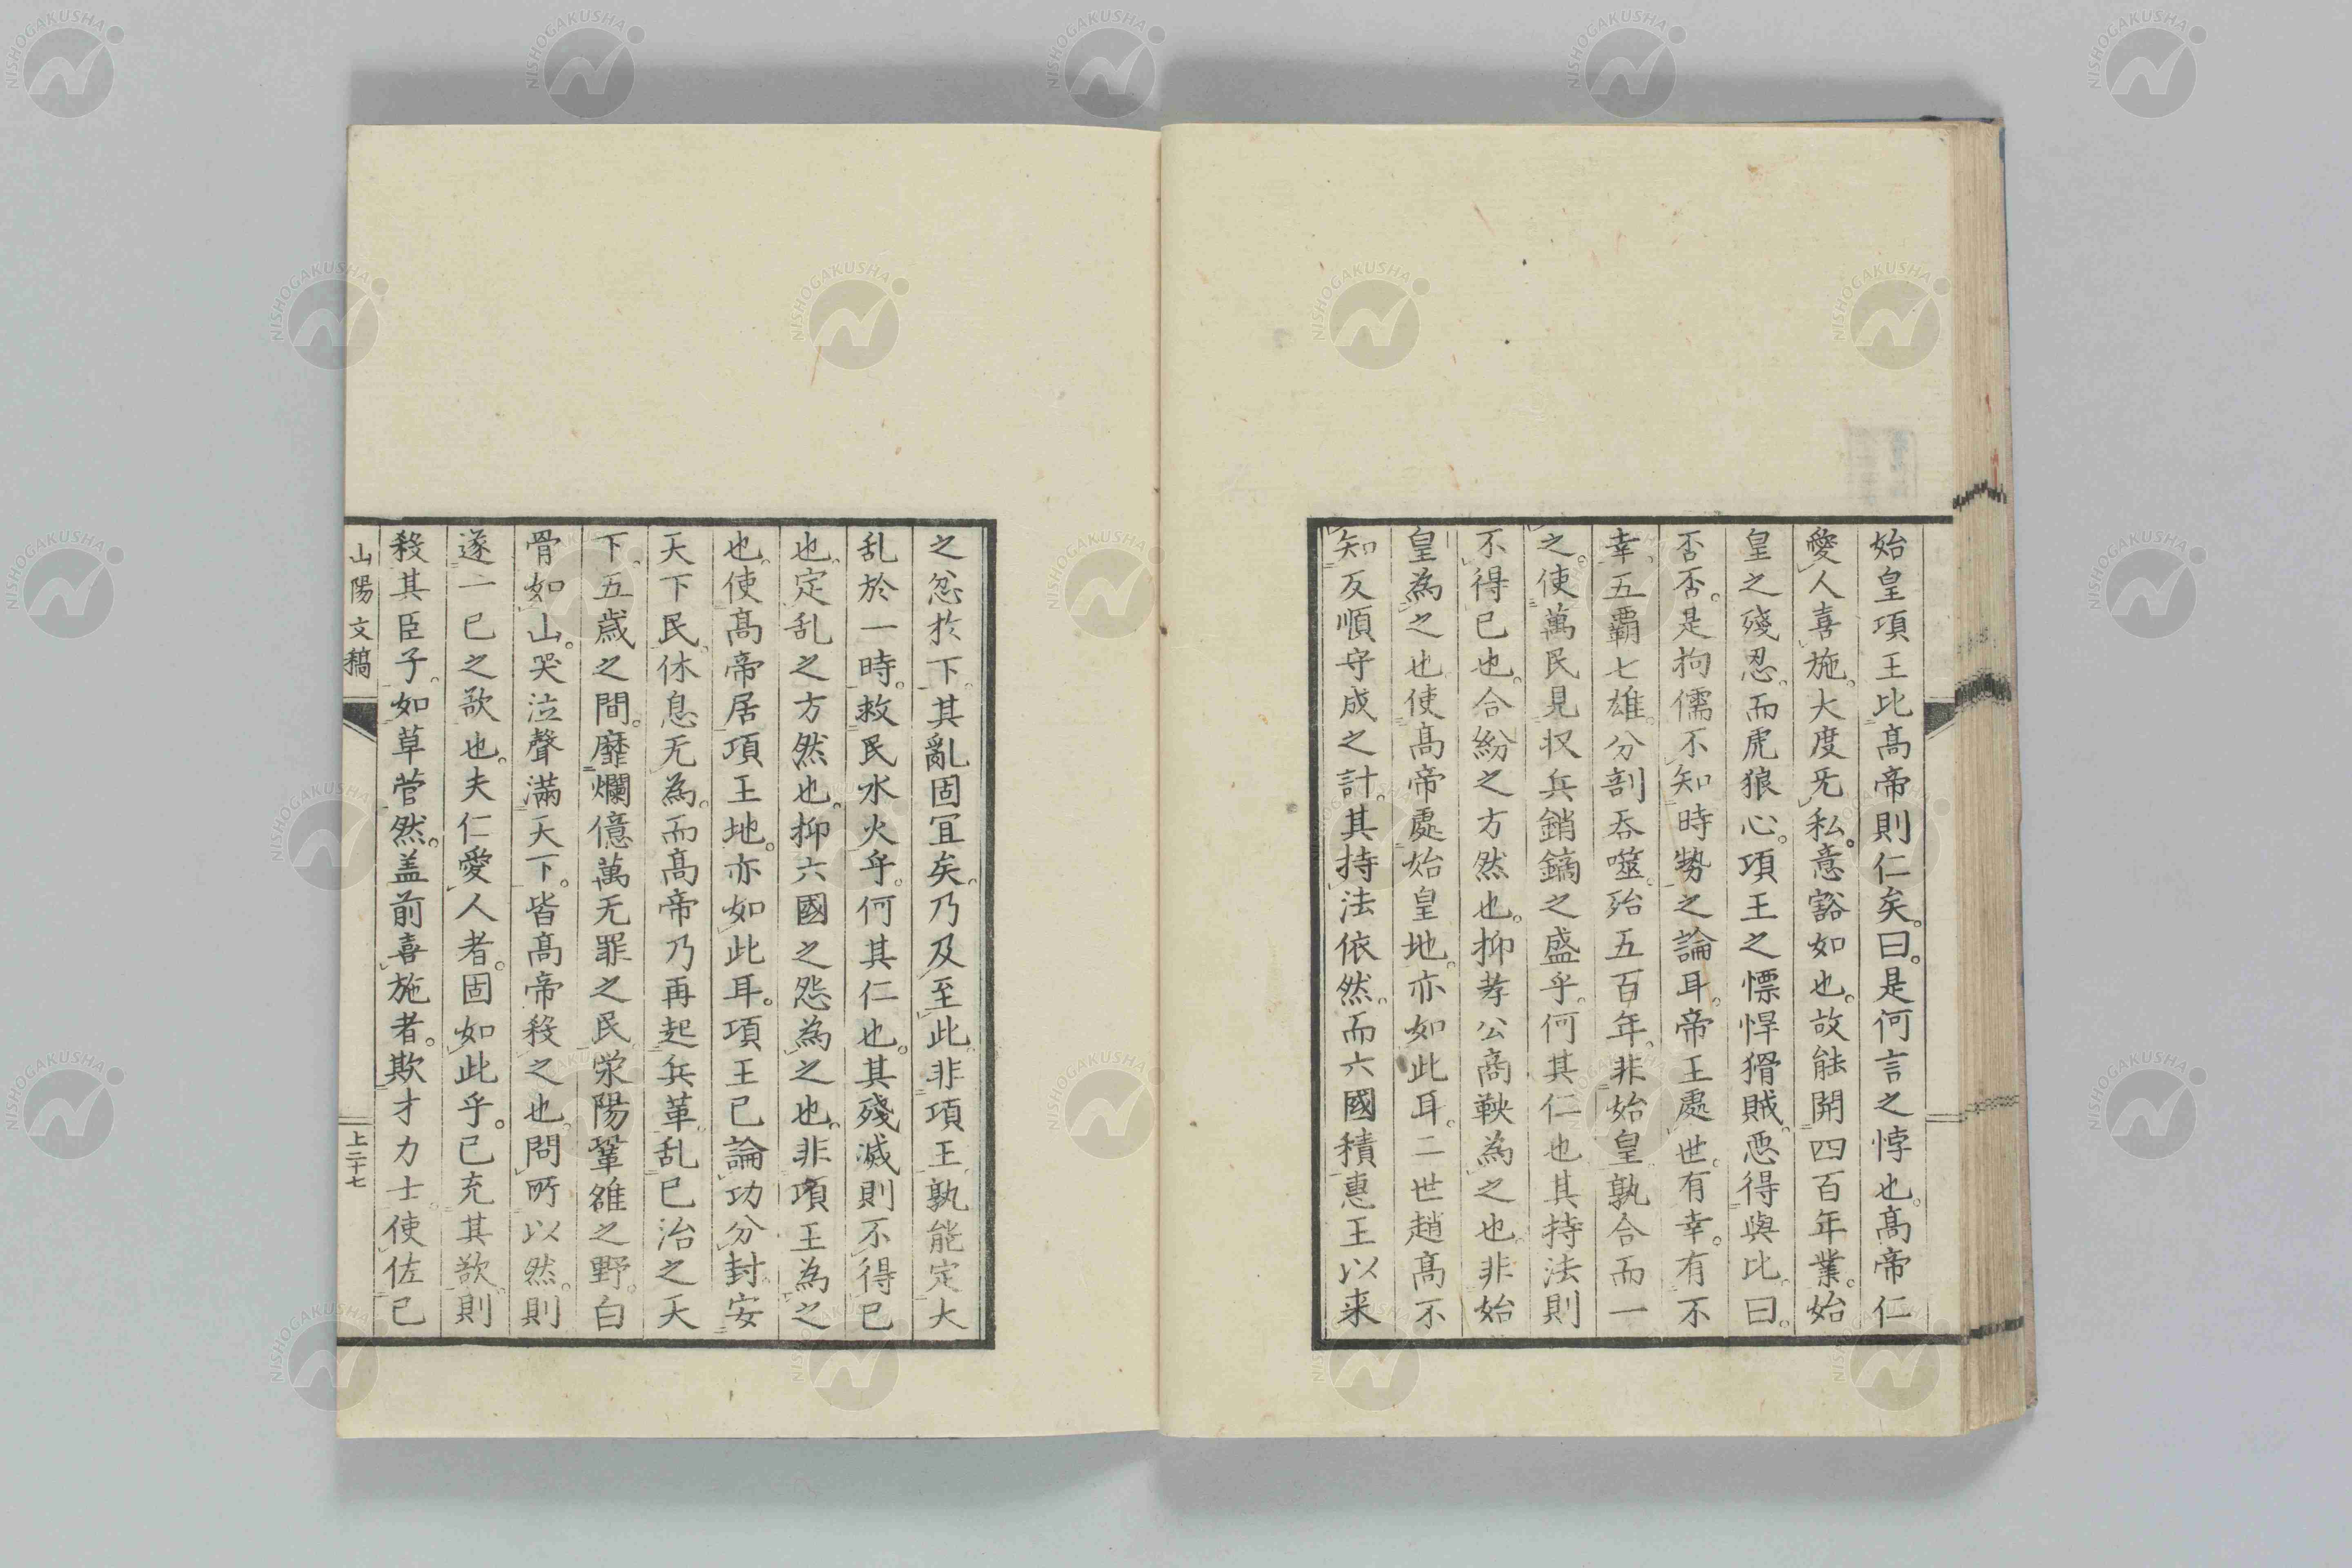 始皇項王比髙帝則仁矣。曰。是何言之悖也。髙帝仁
愛人喜施。大度旡私。意豁如也。故能開四百年業。始
皇之殘忍。而虎狼心。項王之慓悍猾賊。惡得與比。曰。
否否。是拘儒不知時勢之論耳。帝王處世。有幸。有不
幸。五霸七雄。分剖吞噬。殆五百年。非始皇孰合而一
之。使萬民見収兵銷鏑之盛乎。何其仁也其持法則
不得已也。合紛之方然也。抑孝公商鞅為之也。非始
皇為之也使髙帝處始皇地。亦如此耳。二世趙髙不
知反順守成之計。其持法依然。而六國積恵王以来
之怨於下。其亂固冝矣。乃及至此。非項王孰能定大
乱於一時。救民水火乎。何其仁也。其殘滅則不得已
也。定乱之方然也。抑六國之怨為之也。非項王為之
也。使髙帝居項王地。亦如此耳。項王已論功分封。安
天下民。休息无為。而髙帝乃再起兵革。乱已治之天
下。五歳之間。靡爛億萬无罪之民。滎陽鞏雒之野。白
骨如山。哭泣聲滿天下。皆髙帝殺之也。問所以然。則
遂一已之欲也。夫仁愛人者。固如此乎。已充其欲。則
殺其臣子。如草菅然。盖前喜施者。欺才力士。使佐已
山陽文稿
上二十七
NISHOGAKUSHA